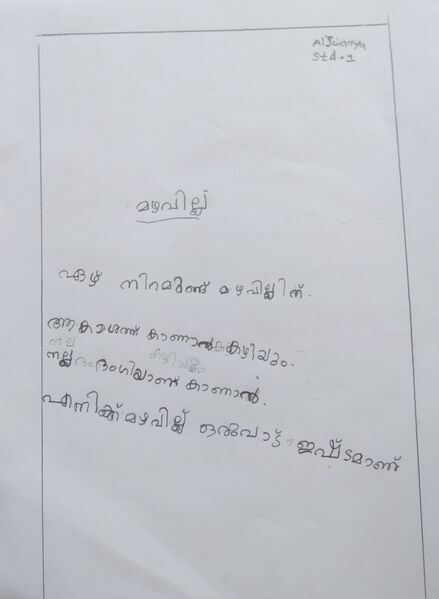 Aiswarya
Std - 1
മഴവില്ല്
ഏഴ് നിറമുണ്ട് മഴവില്ലിന്.
ആകാശത്ത് കാണാൻ കഴിയും.
നല്ല ഭംഗിയാണ് കാണാൻ.
എനിക്ക് മഴവില്ല് ഒരുപാട് ഇഷ്ടമാണ്